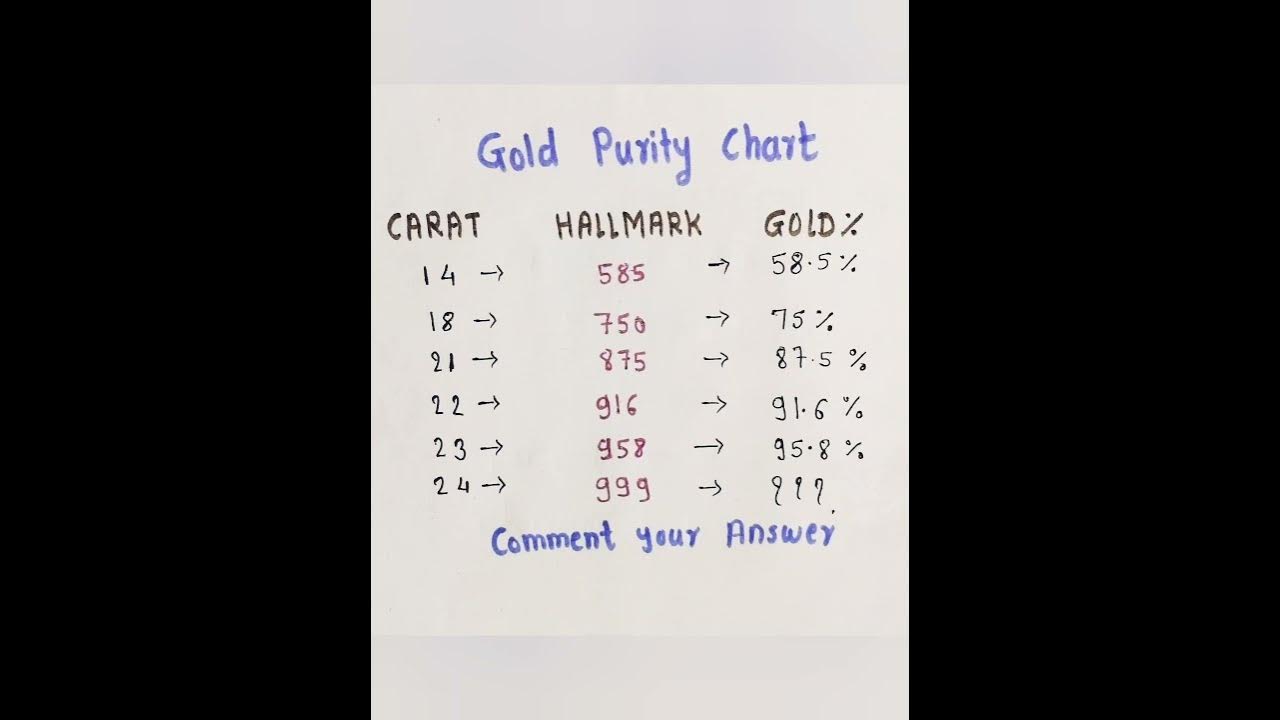 Gold Purity Chart
CARAT HALLMARK GOLD%
14 → 585 → 58.5%
18 → 750 → 75%
21 → 875 → 87.5 %
22 → 916 → 91.6 %
23 → 958 → 95.8 %
24 → 999 → ???
Comment your Answer